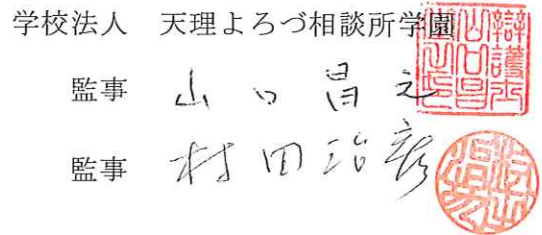 学校法人 天理よろづ相談所学園
監事 山口昌之
監事 村田治彦